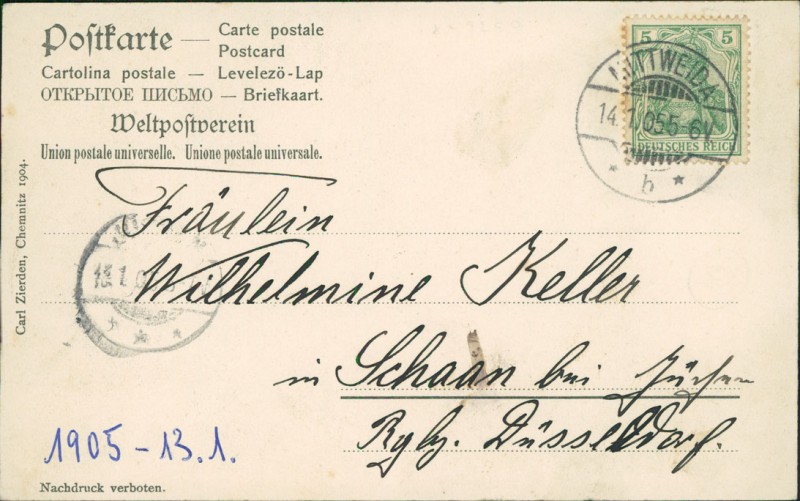 Postkarte — Carte postale
Postcard
Cartolina postale — Levelezö-Lap
ОТКРЫТОЕ ПИСЬМО — Briefkaart.
Weltpostverein
Union postale universelle. Unione postale universale.
5 5
DEUTSCHES REICH
MITTWEIDA
14.1.05 5-6V
* b *
Carl Zierden, Chemnitz 1904.
Fräulein
Wilhelmine Keller
in Schaan bei Jüchen
Rgbz. Düsseldorf.
1905 - 13.1.
Nachdruck verboten.